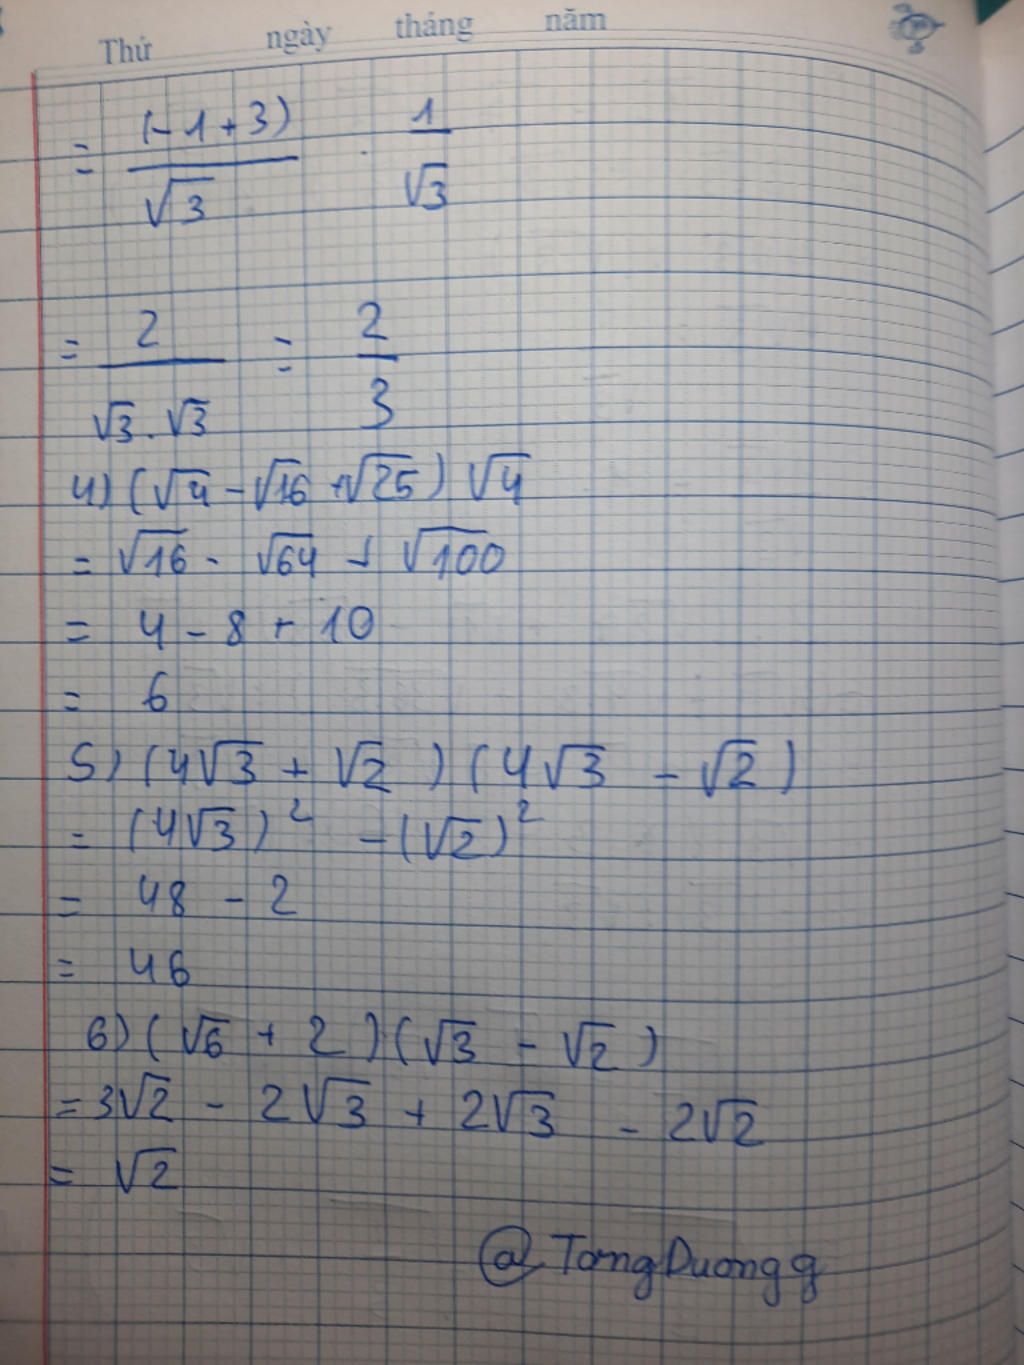 Thứ ngày tháng năm
= (-1+3)/√3 · 1/√3
= 2/(√3.√3) = 2/3
4) (√4 - √16 + √25) √4
= √16 - √64 + √100
= 4 - 8 + 10
= 6
5) (4√3 + √2) (4√3 - √2)
= (4√3)² - (√2)²
= 48 - 2
= 46
6) (√6 + 2) (√3 - √2)
= 3√2 - 2√3 + 2√3 - 2√2
= √2
@TongDuongg